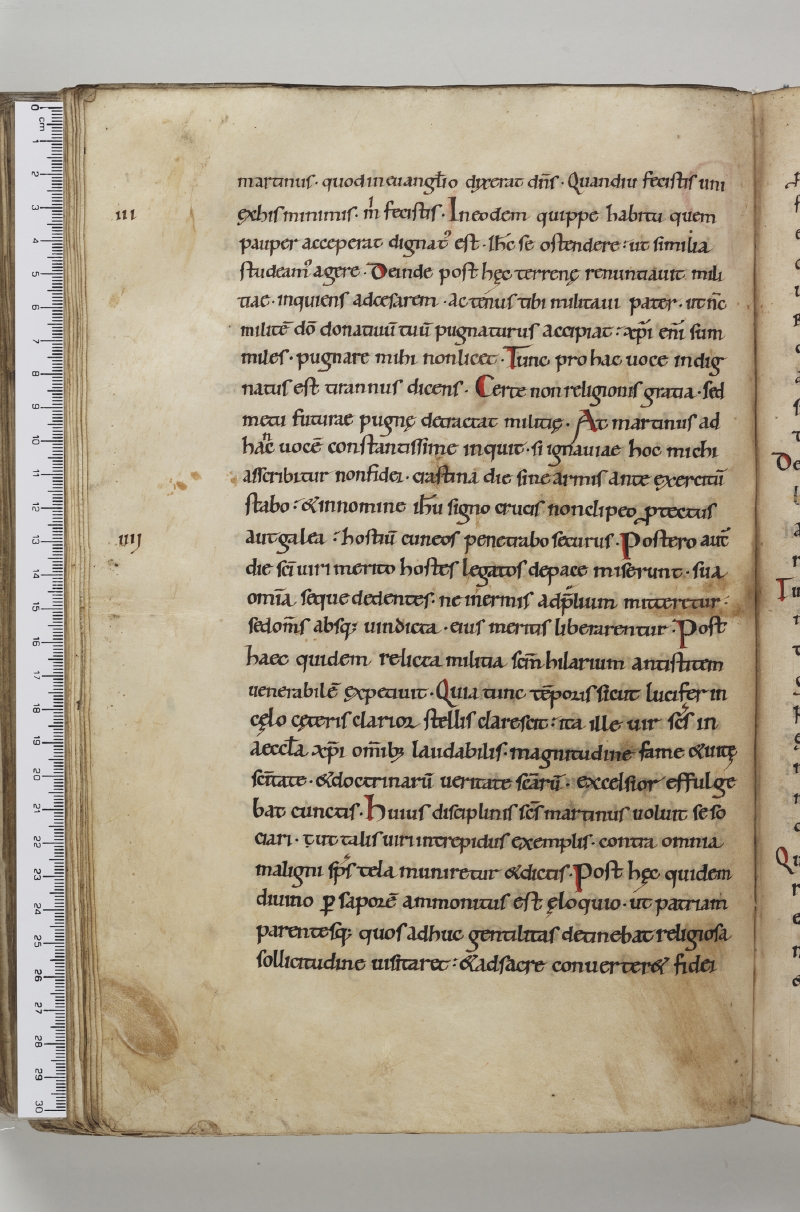 martinus· quod in euangl̄io dixerat dn̄s· Quandiu fecistis uni
iii
ex his minimis· m̍ fecistis· In eodem quippe habitu quem
pauper acceperat dignat᾽ est· ih̄c se ostendere: ut similia
studeam᾽ agere· Deinde post hęc terrenę renuntiauit mili
tiae· inquiens ad cesarem· actenus tibi militaui pater· ut nc̄
militē dō donatiuū tuū pugnaturus accipiat: xp̄i eni̅ sum
miles· pugnare mihi non licet· Tunc pro hac uoce indig
natus est tirannus dicens· Certe non religionis gratia· sed
metu futurae pugnę detractat militię· At martinus ad
hanc uocē constantissime inquit· si ignauiae hoc michi
asscribitur non fidei· crastina die sine armis ante exercitū
stabo: & in nomine ih̄u signo crucis non clipeo ꝓtectus
iiij
aut galea: hostiū cuneos penetrabo securus· Postero aut̄
die sc̄i uiri merito hostes legatos de pace miserunt· sua
omīa seque dedentes· ne inermis ad p̄lium mitteretur·
sed om̄s absq; uindicta· eius meritis liberarentur· Post
haec quidem relicta militia sc̄m hilarium antistitem
uenerabilē expetiuit· Quia tunc tēporis sicut lucifer in
cęlo cęteris clarior stellis clarescit: ita ille uir sc̄s in
aeccl̄a xp̄i omīb; laudabilis· magnitudine fame & uitę
sc̄itate· & doctrinarū ueritate sc̄arū· excelsior effulge
bat cunctis· Huius disciplinis sc̄s martinus uoluit se so
ciari· ut talis uiri intrepidus exemplis· contra omnia
maligni sp̄s tela muniretur & dictis· Post hęc quidem
diuino ꝑ saporē ammonitus est ęloquio· ut patriam
parentesq; quos adhuc gentilitas detinebat religiosa
sollicitudine uisitaret: & ad sacre conuerter& fidei